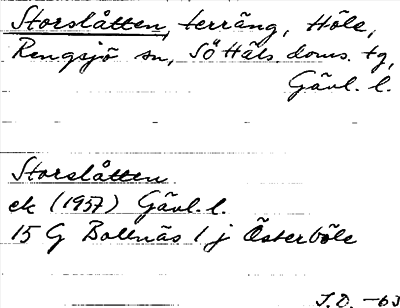 Storslåtten, terräng, Höle,
Rengsjö sn, SöHäls. doms. tg,
Gävl. l.
Storslåtten
ek (1957) Gävl. l.
15 G Bollnäs 1 j Österböle
I.D. -63